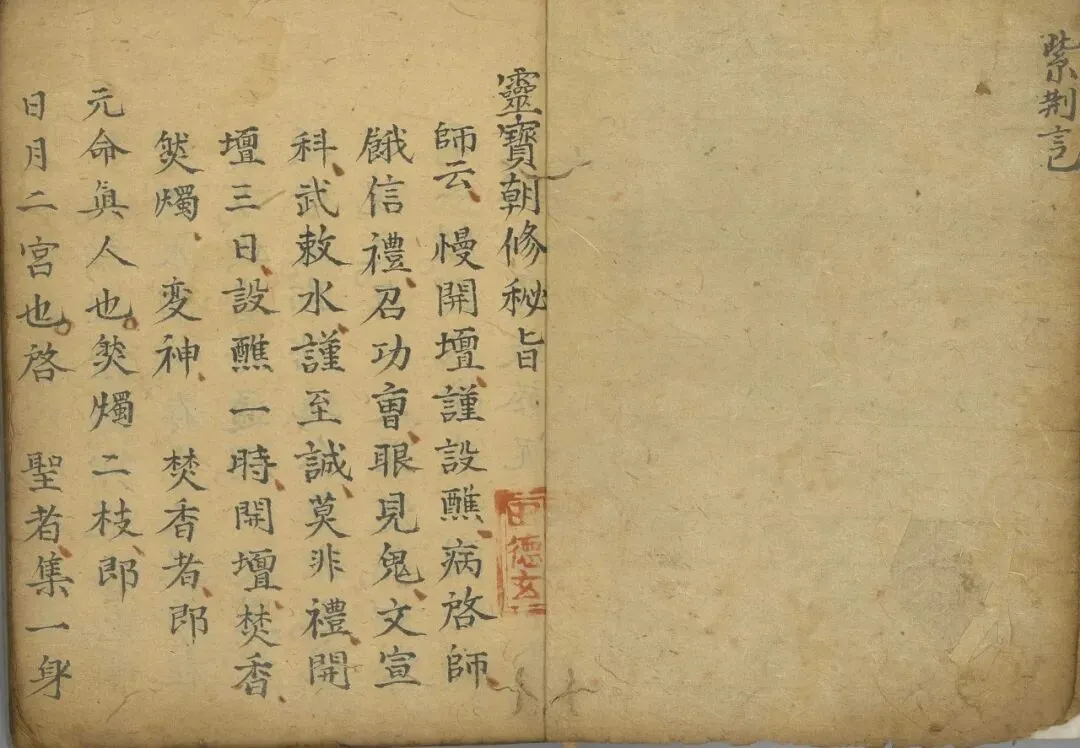 紫荆言
靈寶朝修秘旨
師云慢開壇謹設醮病啓師
餓信禮召功曺眼見鬼文宣
科武敕水謹至誠莫非禮開
壇三日設醮一時開壇焚香
焚燭変神 焚香者郎
元命眞人也焚燭二枝郎
日月二宮也啓 聖者集一身
德玄